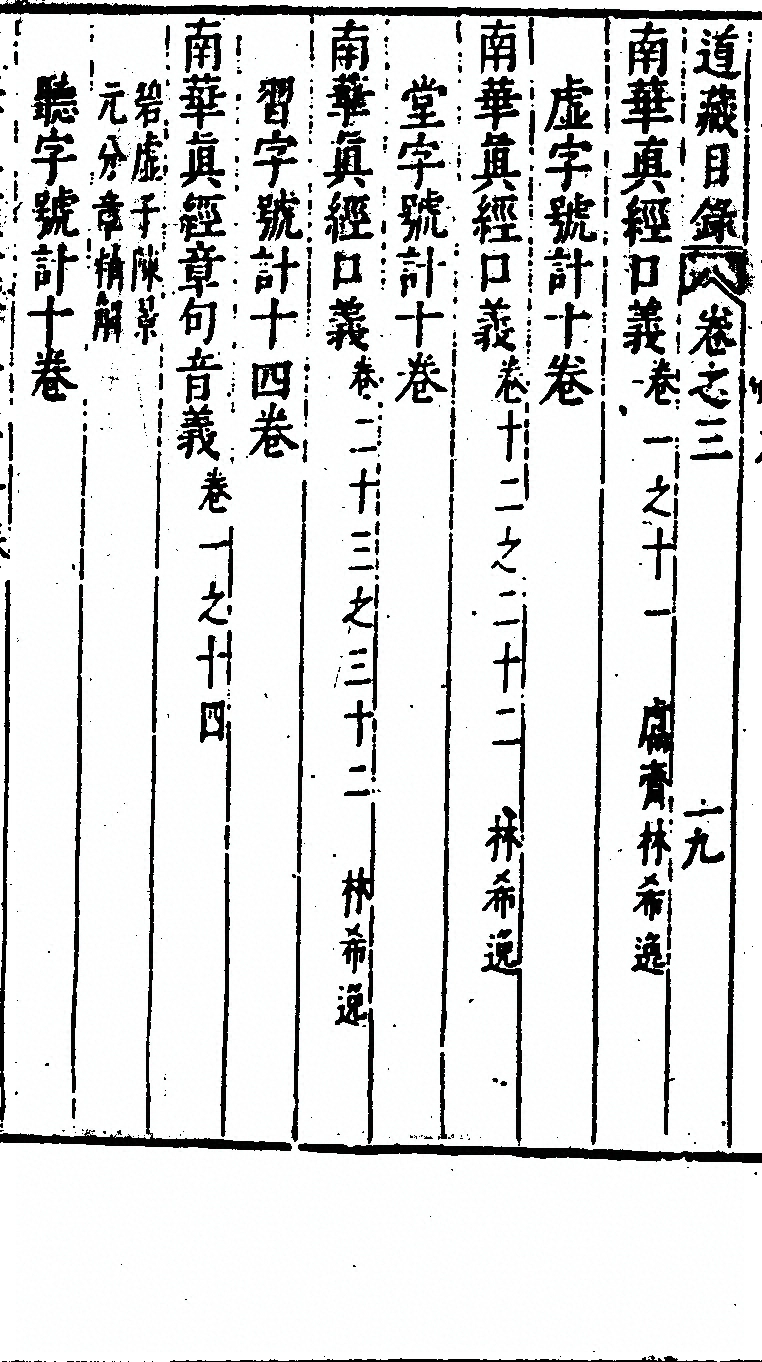 道藏目錄卷之三　一九
南華眞經口義卷一之十一　鬳齋林希逸
虛字號計十卷
南華眞經口義卷十二之二十二　林希逸
堂字號計十卷
南華眞經口義卷二十三之三十二　林希逸
習字號計十四卷
南華眞經章句音義卷一之十四
碧虛子陳景
元分章精解
聽字號計十卷